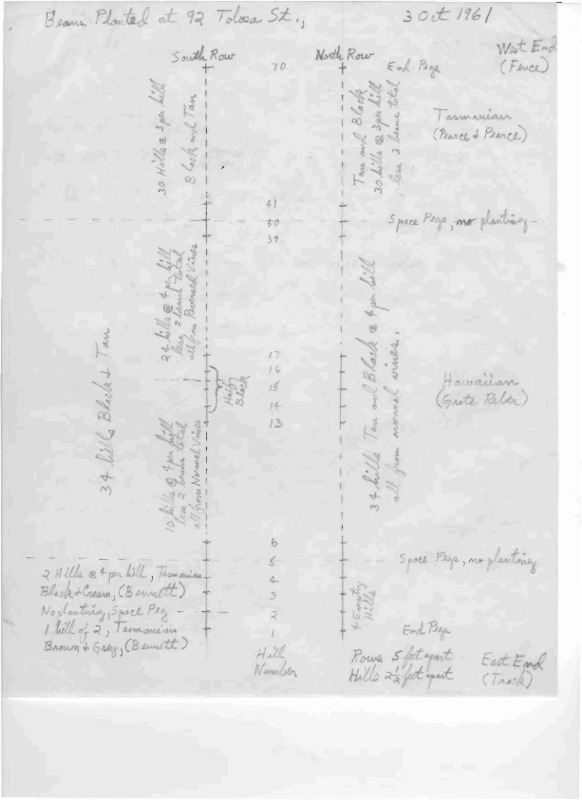 Beans Planted at 92 Tolosa St.,
3 Oct 1961
West End
(Fence)
South Row
North Row
70
End Pegs
30 Hills @ 3 per hill
Black and Tan
Tan and Black
30 hills @ 3 per hill
less 3 beans total
Tasmanian
(Pearce & Pearce)
41
40
Space Pegs, no planting
39
24 hills @ 4 per hill
less 2 beans total
all from Reversed Vines
34 hills Black & Tan
34 hills Tan and Black @ 4 per hill
all from normal vines.
17
16
15
14
13
Half
Black
Hawaiian
(Grote Reber)
10 hills @ 4 per hill
less 2 beans total
all from Normal Vines
6
5
Space Pegs, no planting
4
3
2
1
2 Hills @ 4 per hill, Tasmanian
Black & Cream, (Bennett)
No planting, Space Peg
1 hill of 2, Tasmanian
Brown & Grey, (Bennett)
4 Empty
Hills
End Pegs
Hill
Number
Rows 5 feet apart
Hills 2½ feet apart
East End
(Track)